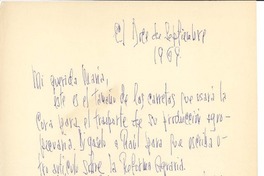 El Doce de Septiembre
1964
Mi querida María,
este es el tamaño de las carretas que usará la
Cora para el trasporte de su producción agro-
pecuaria. Dígaselo a Raúl para que escriba o-
tro artículo sobre la Reforma Agraria.